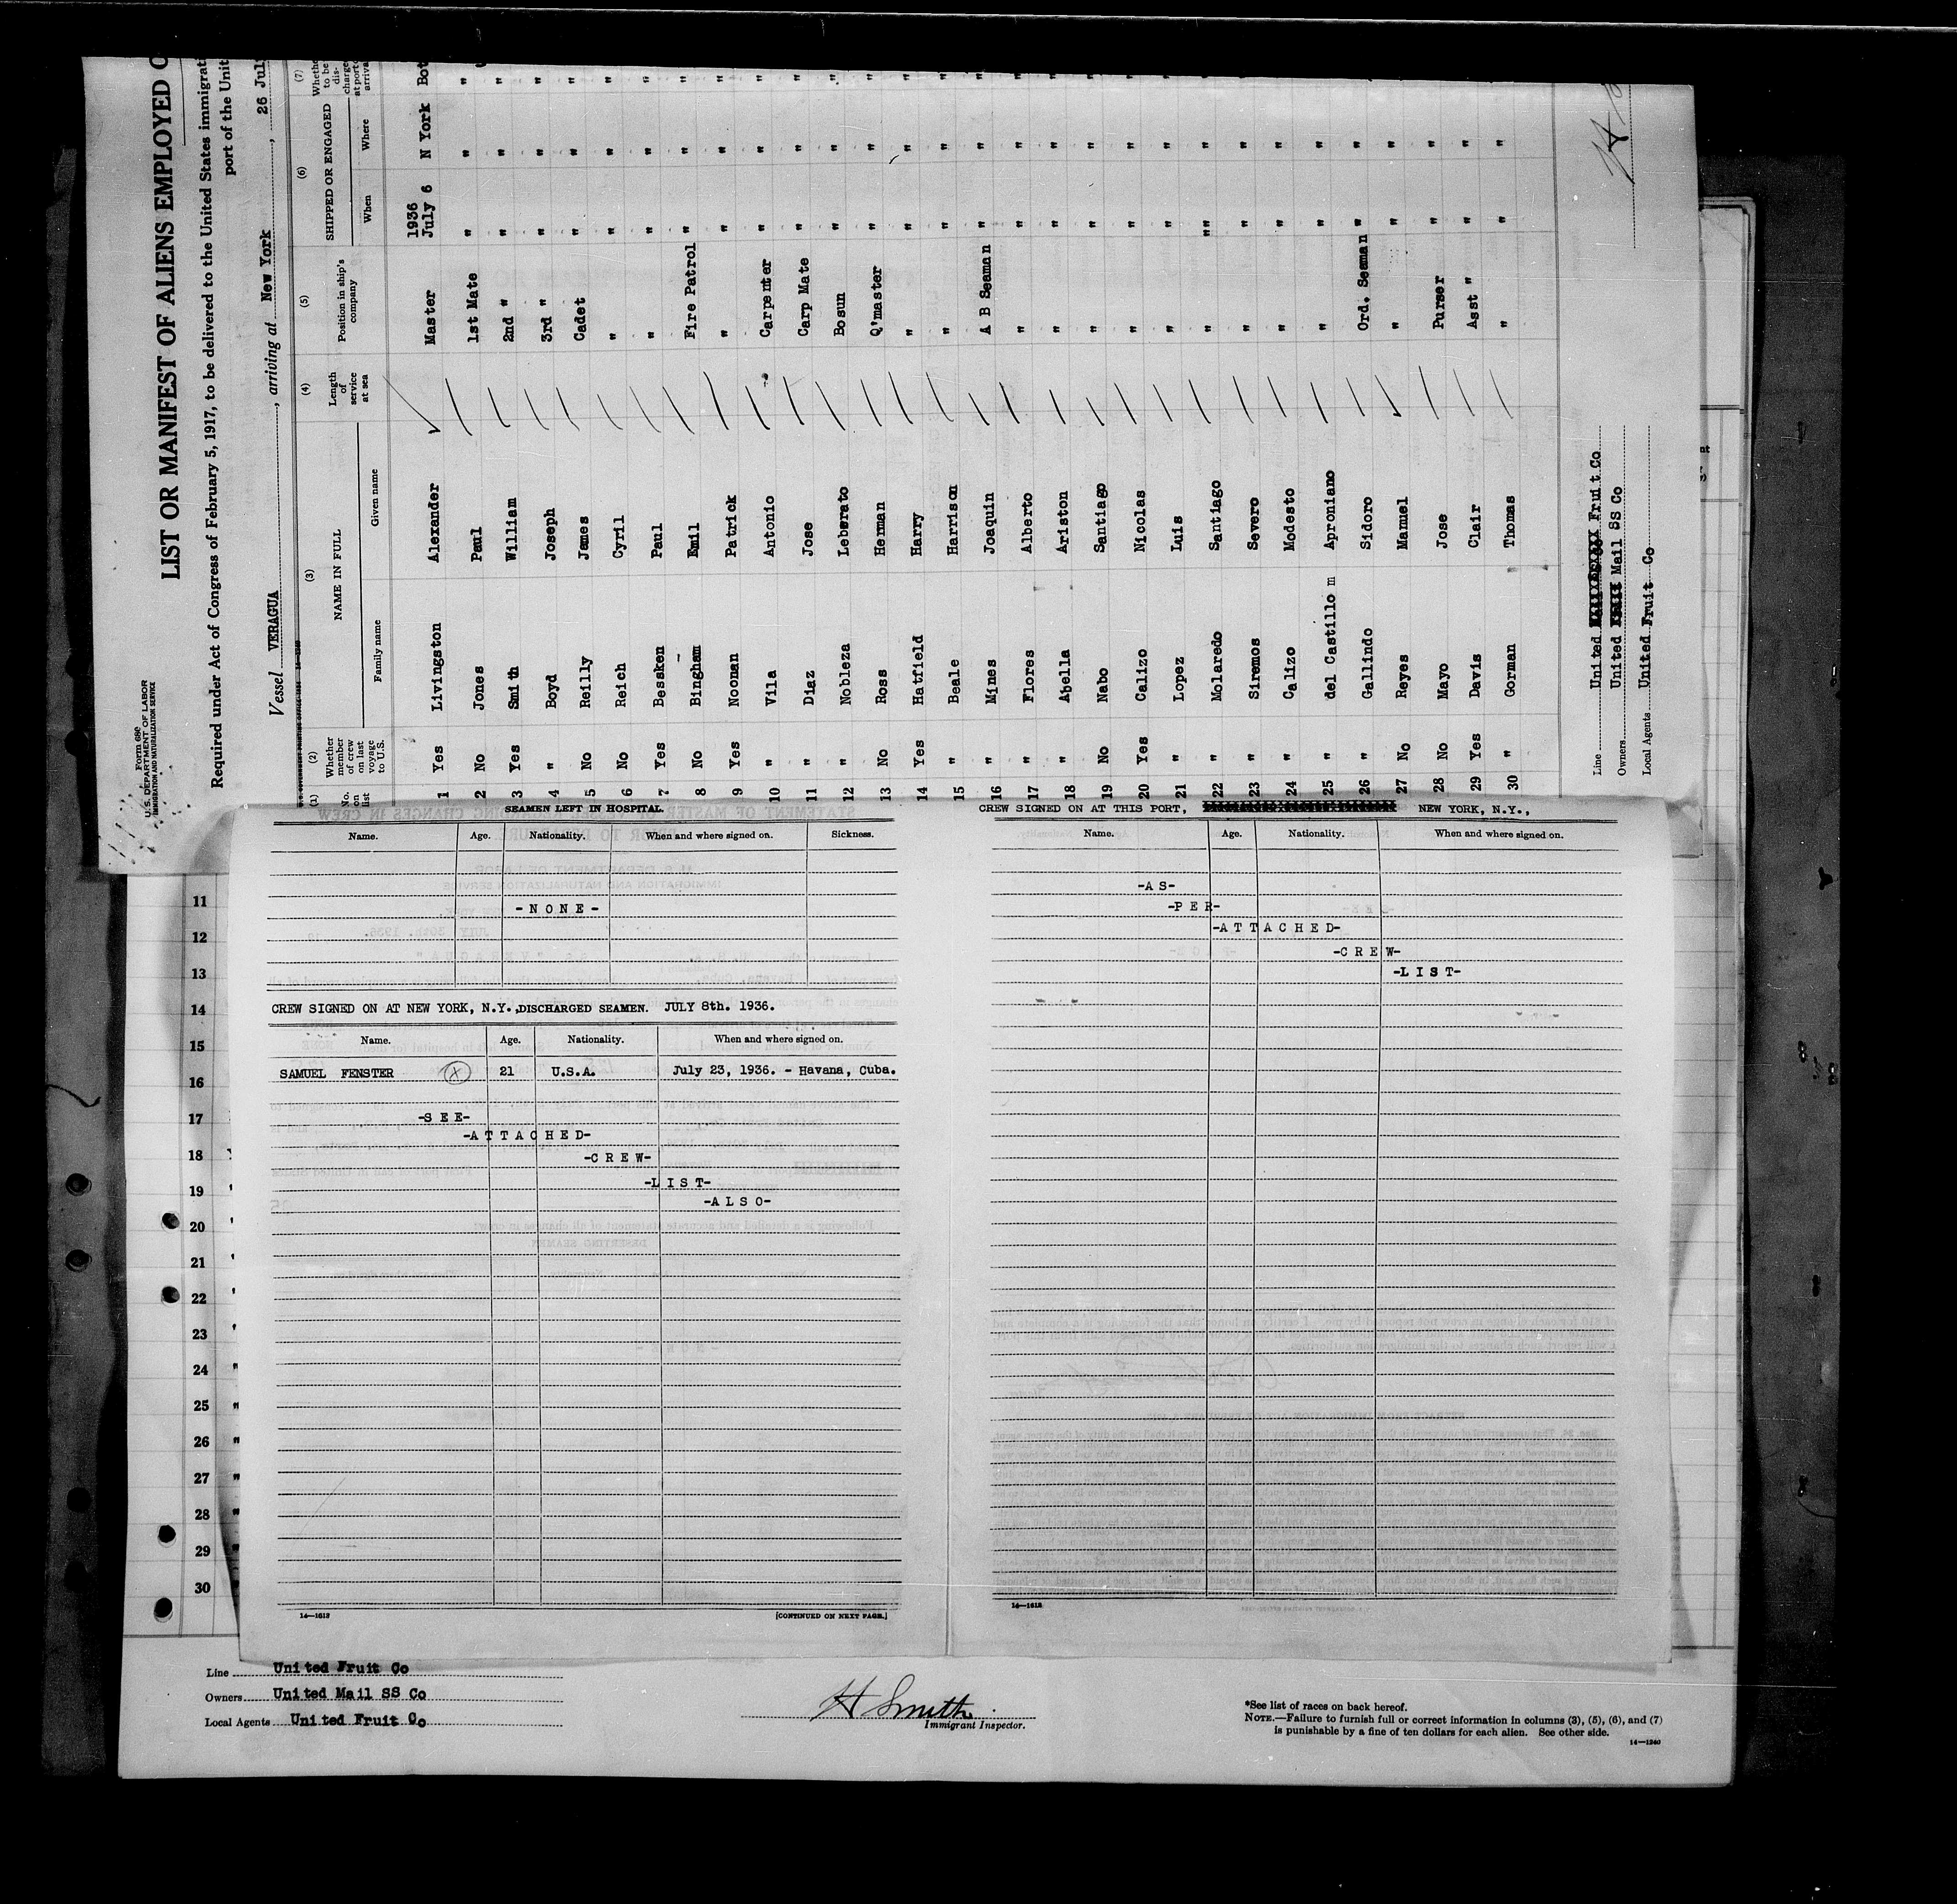 Form 680
U.S. DEPARTMENT OF LABOR
IMMIGRATION AND NATURALIZATION SERVICE
LIST OR MANIFEST OF ALIENS EMPLOYED
Required under Act of Congress of February 5, 1917, to be delivered to the United States
port of the
Vessel VERAGUA, arriving at New York, 26
(1) (2) (3) (4) (5) (6) (7)
No. on list Whether member of crew on last voyage to U.S. NAME IN FULL Length of service at sea Position in ship's company SHIPPED OR ENGAGED
Family name Given name When Where
1936
1 Yes Livingston Alexander Master July 6 N York
2 No Jones Paul 1st Mate " " "
3 Yes Smith William 2nd " " " "
4 " Boyd Joseph 3rd " " " "
5 No Reilly James Cadet " " "
6 No Reich Cyril " " " "
7 Yes Bessken Paul " " " "
8 No Bingham Emil Fire Patrol " " "
9 Yes Noonan Patrick " " " "
10 " Vila Antonio Carpenter " " "
11 " Diaz Jose Carp Mate " " "
12 " Nobleza Leberato Bosun " " "
13 No Ross Herman Q'master " " "
14 Yes Hatfield Harry " " " "
15 " Beale Harrison " " " "
16 " Mines Joaquin A B Seaman " " "
17 " Flores Alberto " " " "
18 " Abella Ariston " " " "
19 No Nabo Santiago " " " "
20 Yes Calizo Nicolas " " " "
21 " Lopez Luis " " " "
22 " Molaredo Santiago " "" " "
23 " Siremos Severo " " " "
24 " Calizo Modesto " " " "
25 " del Castillo m Aproniano " " " "
26 " Gallindo Sidoro Ord. Seaman " " "
27 No Reyes Manuel " " " "
28 No Mayo Jose Purser " " "
29 Yes Davis Clair Asst " " " "
30 " Gorman Thomas " " " "
Line United Fruit Co
Owners United Mail SS Co
Local Agents United Fruit Co
SEAMEN LEFT IN HOSPITAL.
Name. Age. Nationality. When and where signed on. Sickness.
-NONE-
CREW SIGNED ON AT NEW YORK, N.Y., DISCHARGED SEAMEN. JULY 8th. 1936.
Name. Age. Nationality. When and where signed on.
SAMUEL FENSTER X 21 U.S.A. July 23, 1936. - Havana, Cuba.
-SEE-
-ATTACHED-
-CREW-
-LIST-
-ALSO-
14—1612
[CONTINUED ON NEXT PAGE.]
CREW SIGNED ON AT THIS PORT, NEW YORK, N.Y.,
Name. Age. Nationality. When and where signed on.
-AS-
-PER-
-ATTACHED-
-CREW-
-LIST-
14—1612
11
12
13
14
15
16
17
18
19
20
21
22
23
24
25
26
27
28
29
30
Line United Fruit Co
Owners United Mail SS Co
Local Agents United Fruit Co
H Smith
Immigrant Inspector.
*See list of races on back hereof.
NOTE.—Failure to furnish full or correct information in columns (3), (5), (6), and (7)
is punishable by a fine of ten dollars for each alien. See other side.
14—1240